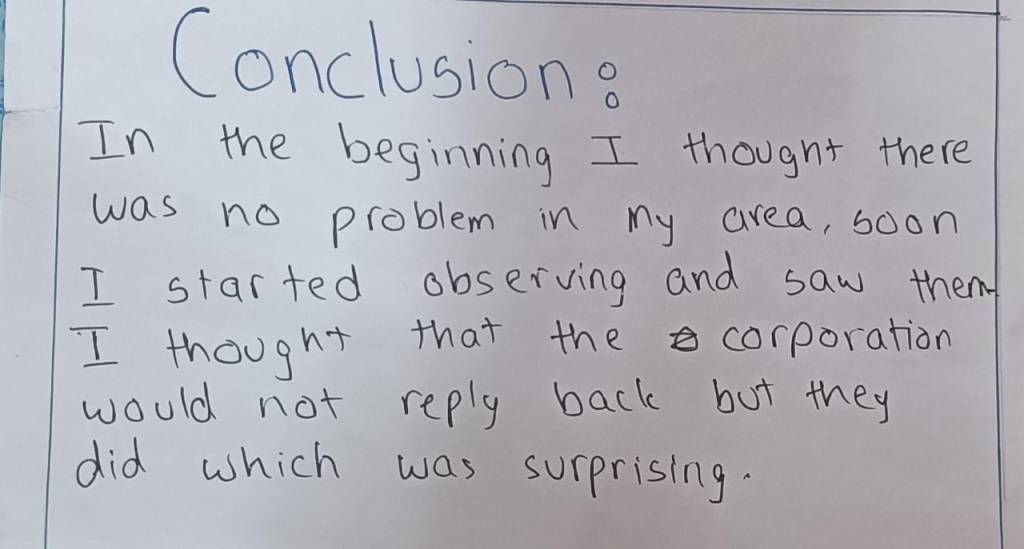 Conclusion:
In the beginning I thought there
was no problem in my area, soon
I started observing and saw them
I thought that the corporation
would not reply back but they
did which was surprising.